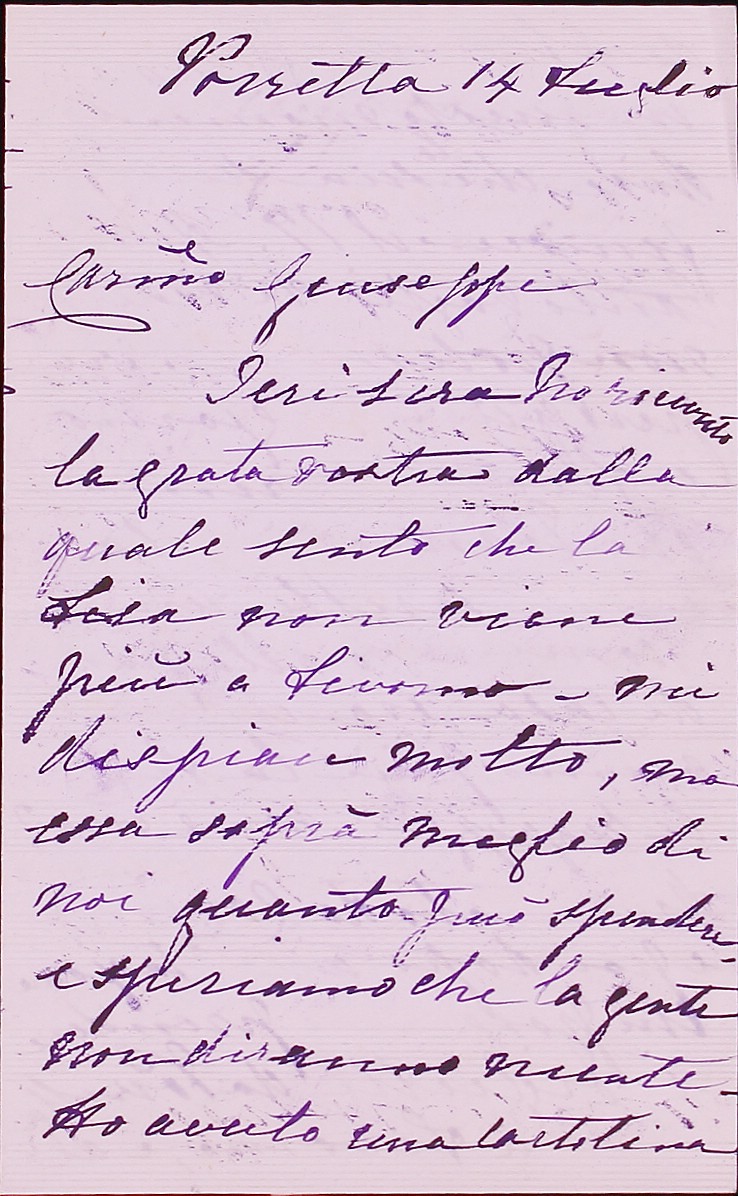 Porretta 14 Luglio
Carmo Giuseppe
Ieri sera ho ricevuto
la grata vostra dalla
quale sento che la
Lisa non viene
più a Livorno - mi
dispiace molto, ma
essa saprà meglio di
noi quanto può spendere,
e speriamo che la gente
non diranno niente -
Ho avuto una cartolina